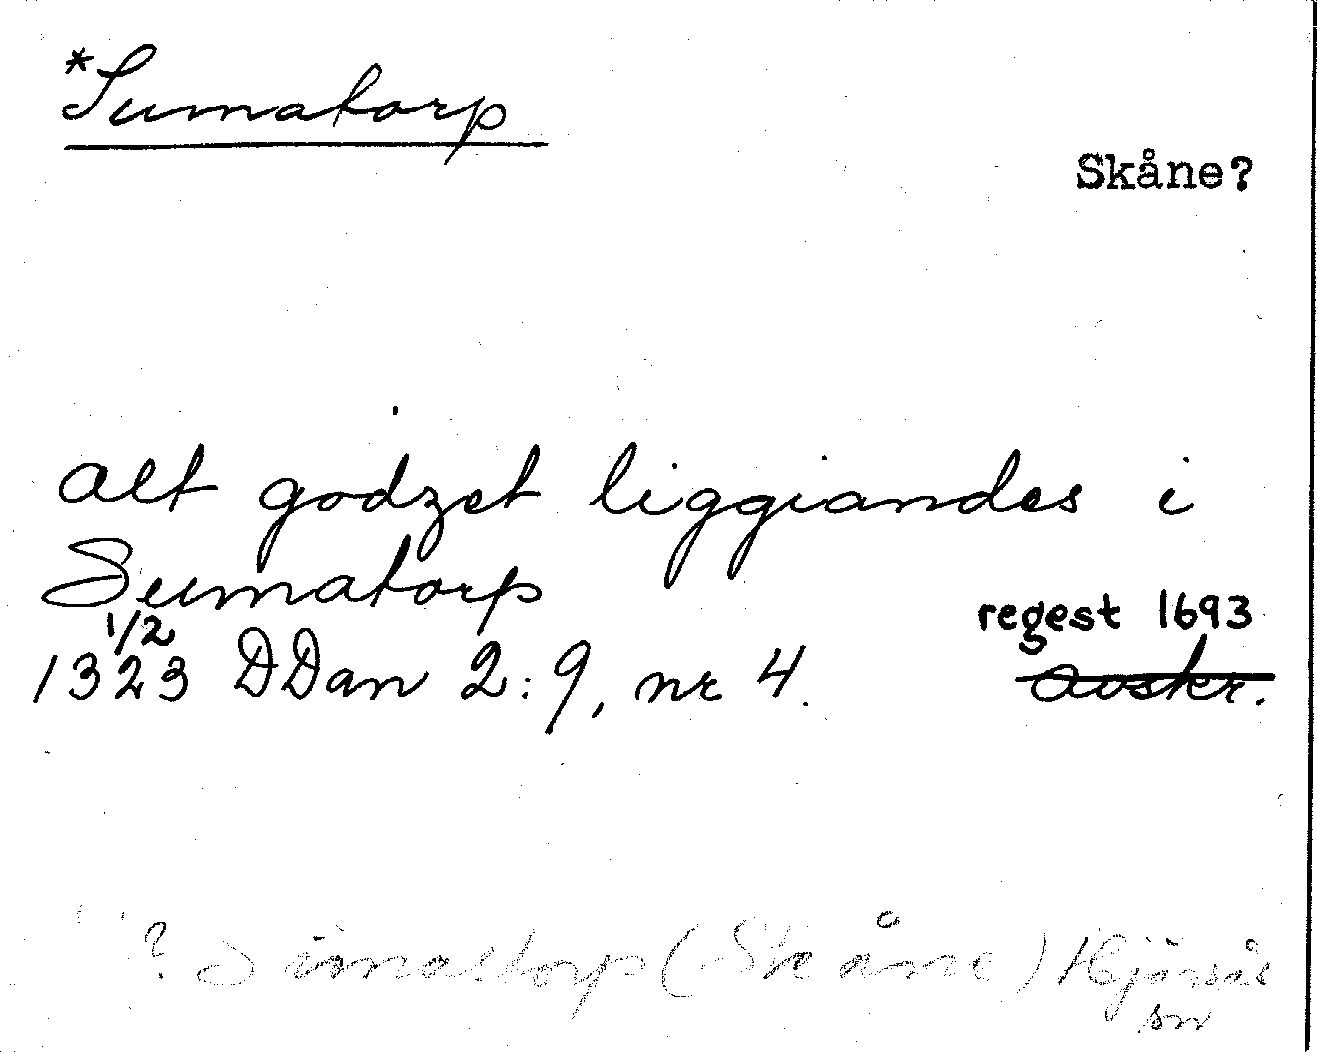 *Sumatorp
Skåne?
alt godzet liggiandes i
Sumatorp
1/2
regest 1693
1323 DDan 2:9, nr 4. avskr.
? Simastorp (Skåne) Hjärsås
sn